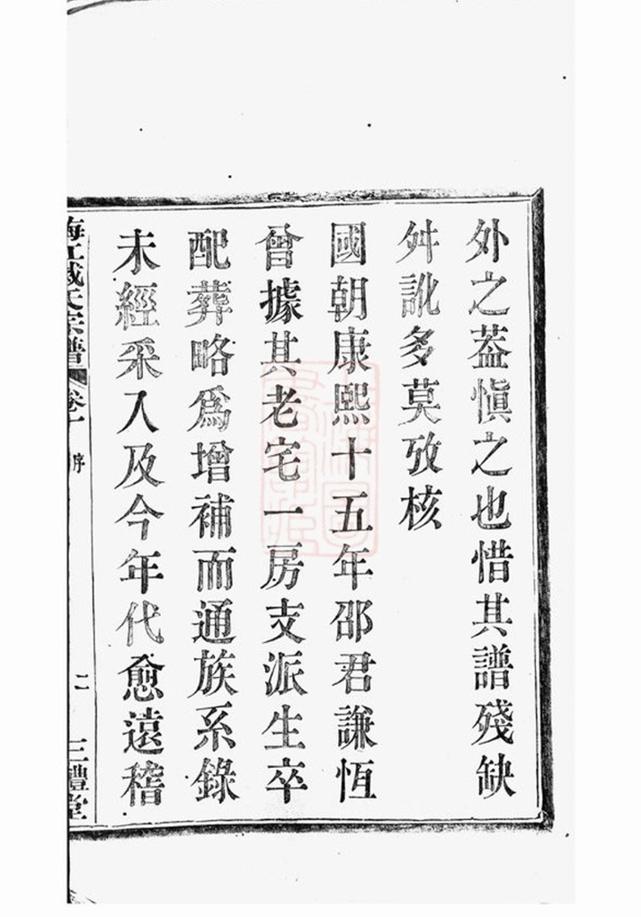 外之葢慎之也惜其譜殘缺
舛訛多莫攷核
國朝康熙十五年邵君謙恆
曾據其老宅一房支派生卒
配葬略爲增補而通族系錄
未經采入及今年代愈遠稽
氏宗譜
序
二
三禮堂